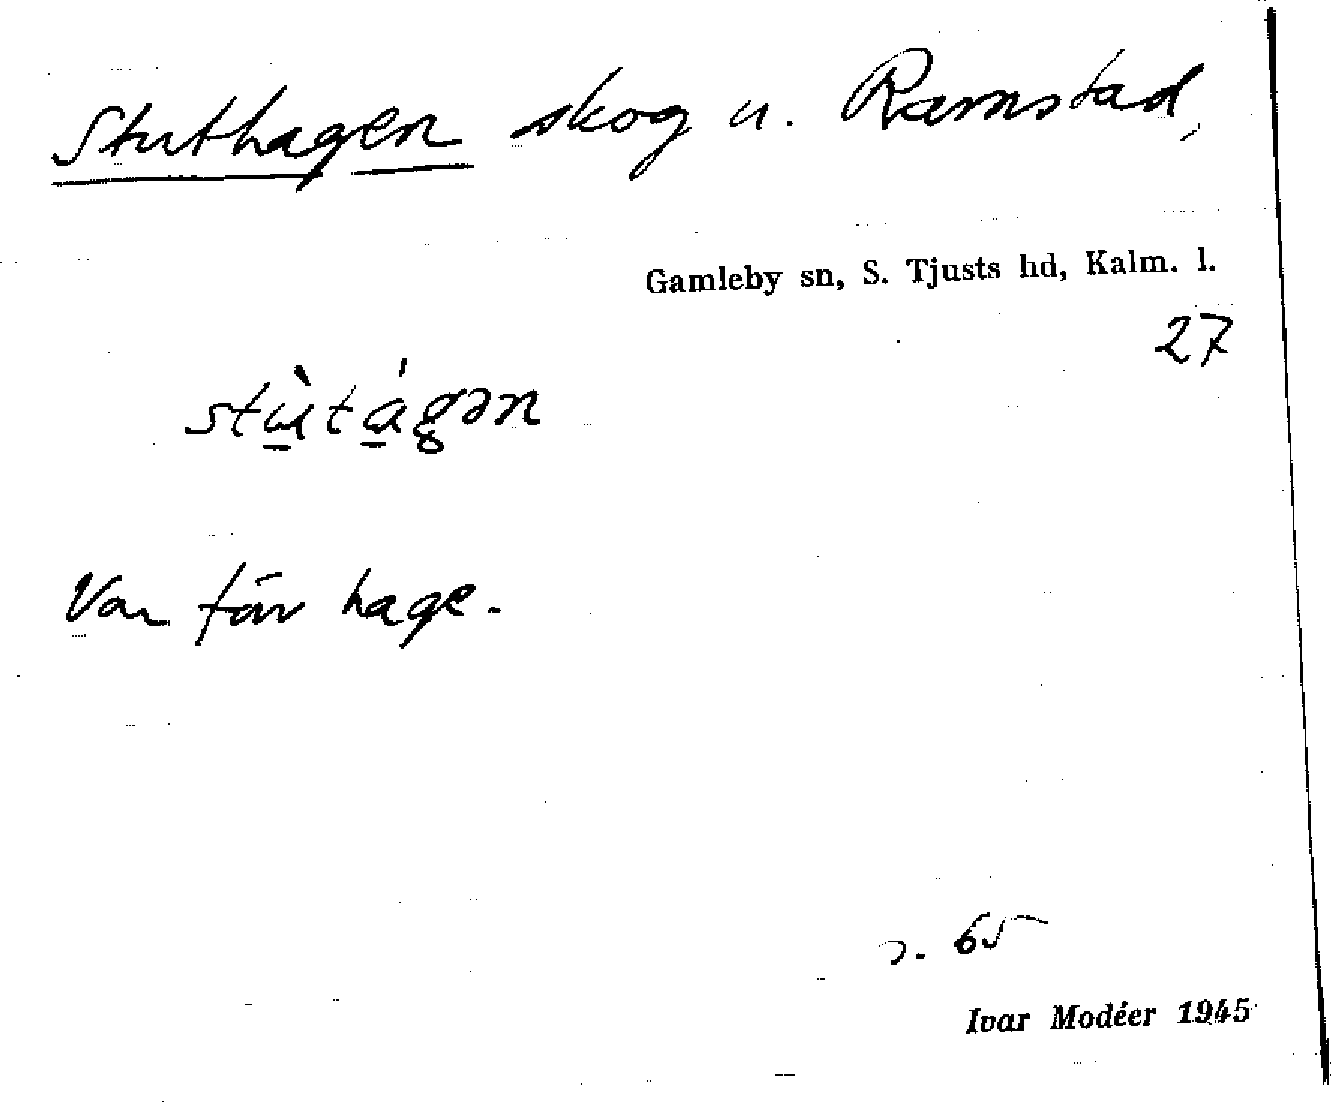 Stuthagen skog u. Ramstad,
Gamleby sn, S. Tjusts hd, Kalm. l.
27
stu̠̇̀ta̠̍gən
Var förr hage.
s. 65
Ivar Modéer 1945